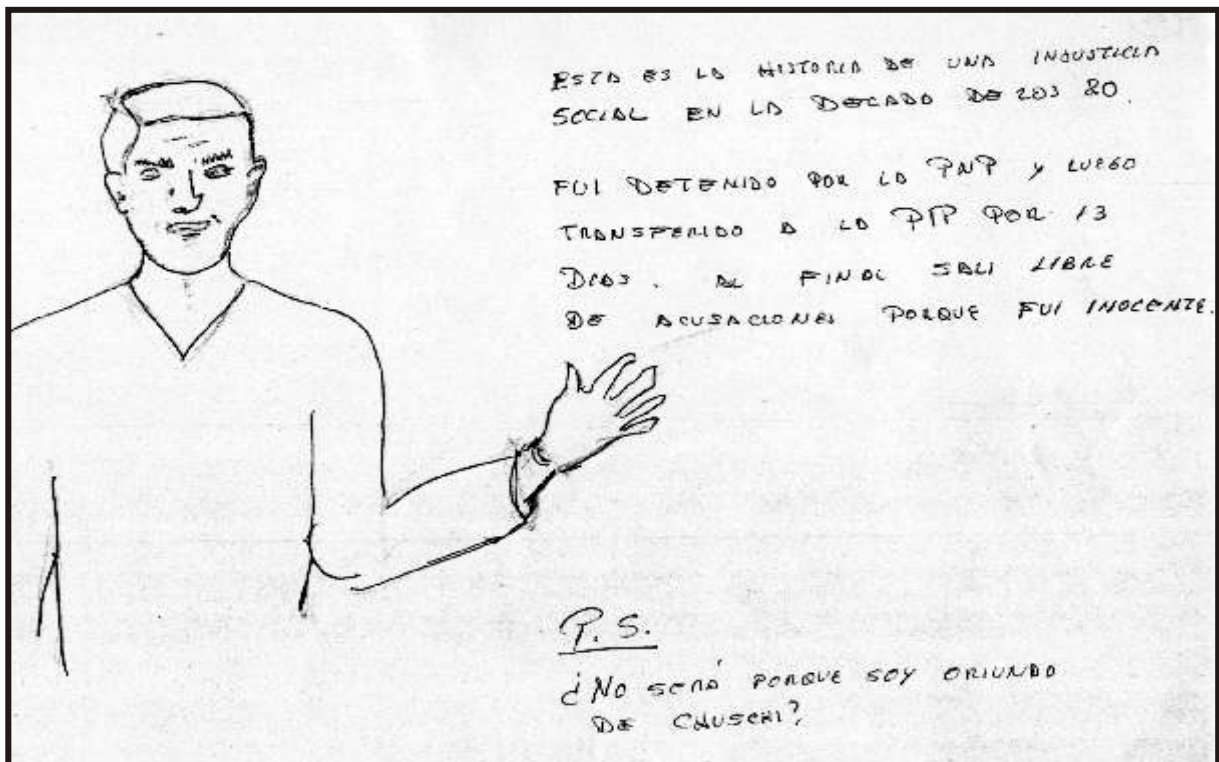 ESTA ES LA HISTORIA DE UNA INJUSTICIA
SOCIAL EN LA DECADA DE LOS 80.
FUI DETENIDO POR LA PNP Y LUEGO
TRANSFERIDO A LA PIP POR 13
DIAS. AL FINAL SALI LIBRE
DE ACUSACIONES PORQUE FUI INOCENTE.
P.S.
¿NO SERÁ PORQUE SOY ORIUNDO
DE CHUSCHI?